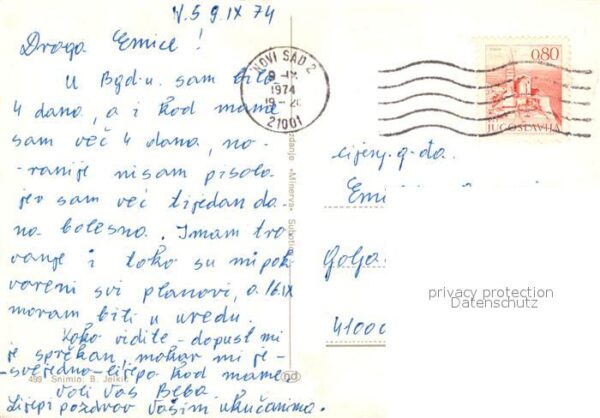 N.S 9.IX 74
Draga Emice!
U Bgd-u sam bila
4 dana, a i kod mame
sam već 4 dana, na-
ranije nisam pisala
jer sam već tjedan da
na bolesna. Imam tro
vanje i tako su mi pok
vareni svi planovi, a 16.IX
moram biti u uredu.
Kako vidite - dopust mi
je sprčkan, makar mi je
-svejedno-lijepo kod mame.
499 Snimio: B. Jelkić
Voli Vas Beba
Lijepi pozdrav Vašim ukućanima.
Izdanje «Minerva» Subotica
NOVI SAD 2
9-IX
1974
19-20
21001
0,80
JUGOSLAVIJA
cijenj. g-đa
Emi
Golja
4100
privacy protection
Datenschutz